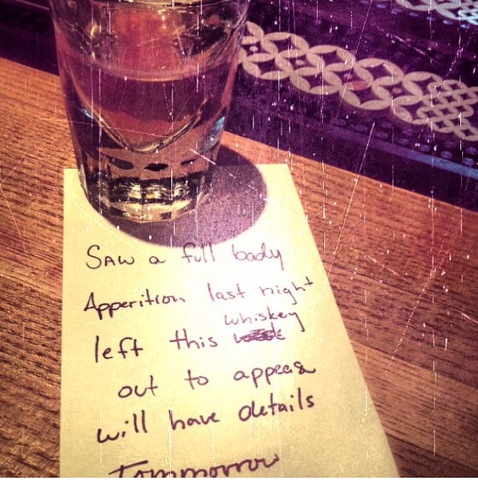 Saw a full body
Apperition last night
whiskey
left this
out to appease
will have details
Tommorrow